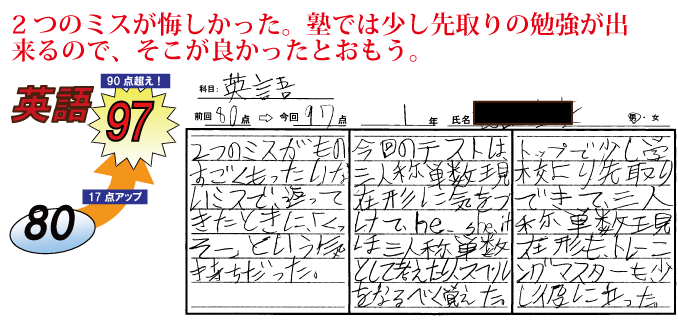 2つのミスが悔しかった。塾では少し先取りの勉強が出
来るので、そこが良かったとおもう。
90点超え！
英語
97
17点アップ
80
科目: 英語
前回 80点 ⇨ 今回 97点 1年 氏名 男・女
2つのミスがもの
すごくもったいな
いミスで、返って
きたときに、「くっ
そー」という気
持ちだった。
今回のテストは
三人称単数現
在形に気をつ
けて、he、she、it
は三人称単数
として考えたり、スペル
をなるべく覚えた。
トップで少し学
校より先取り
できて、三人
称単数現
在形も、トレーニ
ングマスターも少
し役に立った。